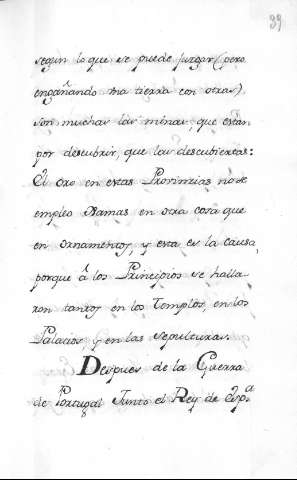 39
segun lo que se puede juzgar (pero
engañando una tierra con otras),
son muchas las minas, que estàn
por descubrir, que las descubiertas:
El oro en estas Provincias no se
empleo Jamas en otra cosa que
en ornamentos, y esta es la causa,
porque â los Principios se halla-
ron tantos en los Templos, en los
Palacios y en las sepulturas.
Despues de la Guerra
de Portugal Junto el Rey de Esp.ª